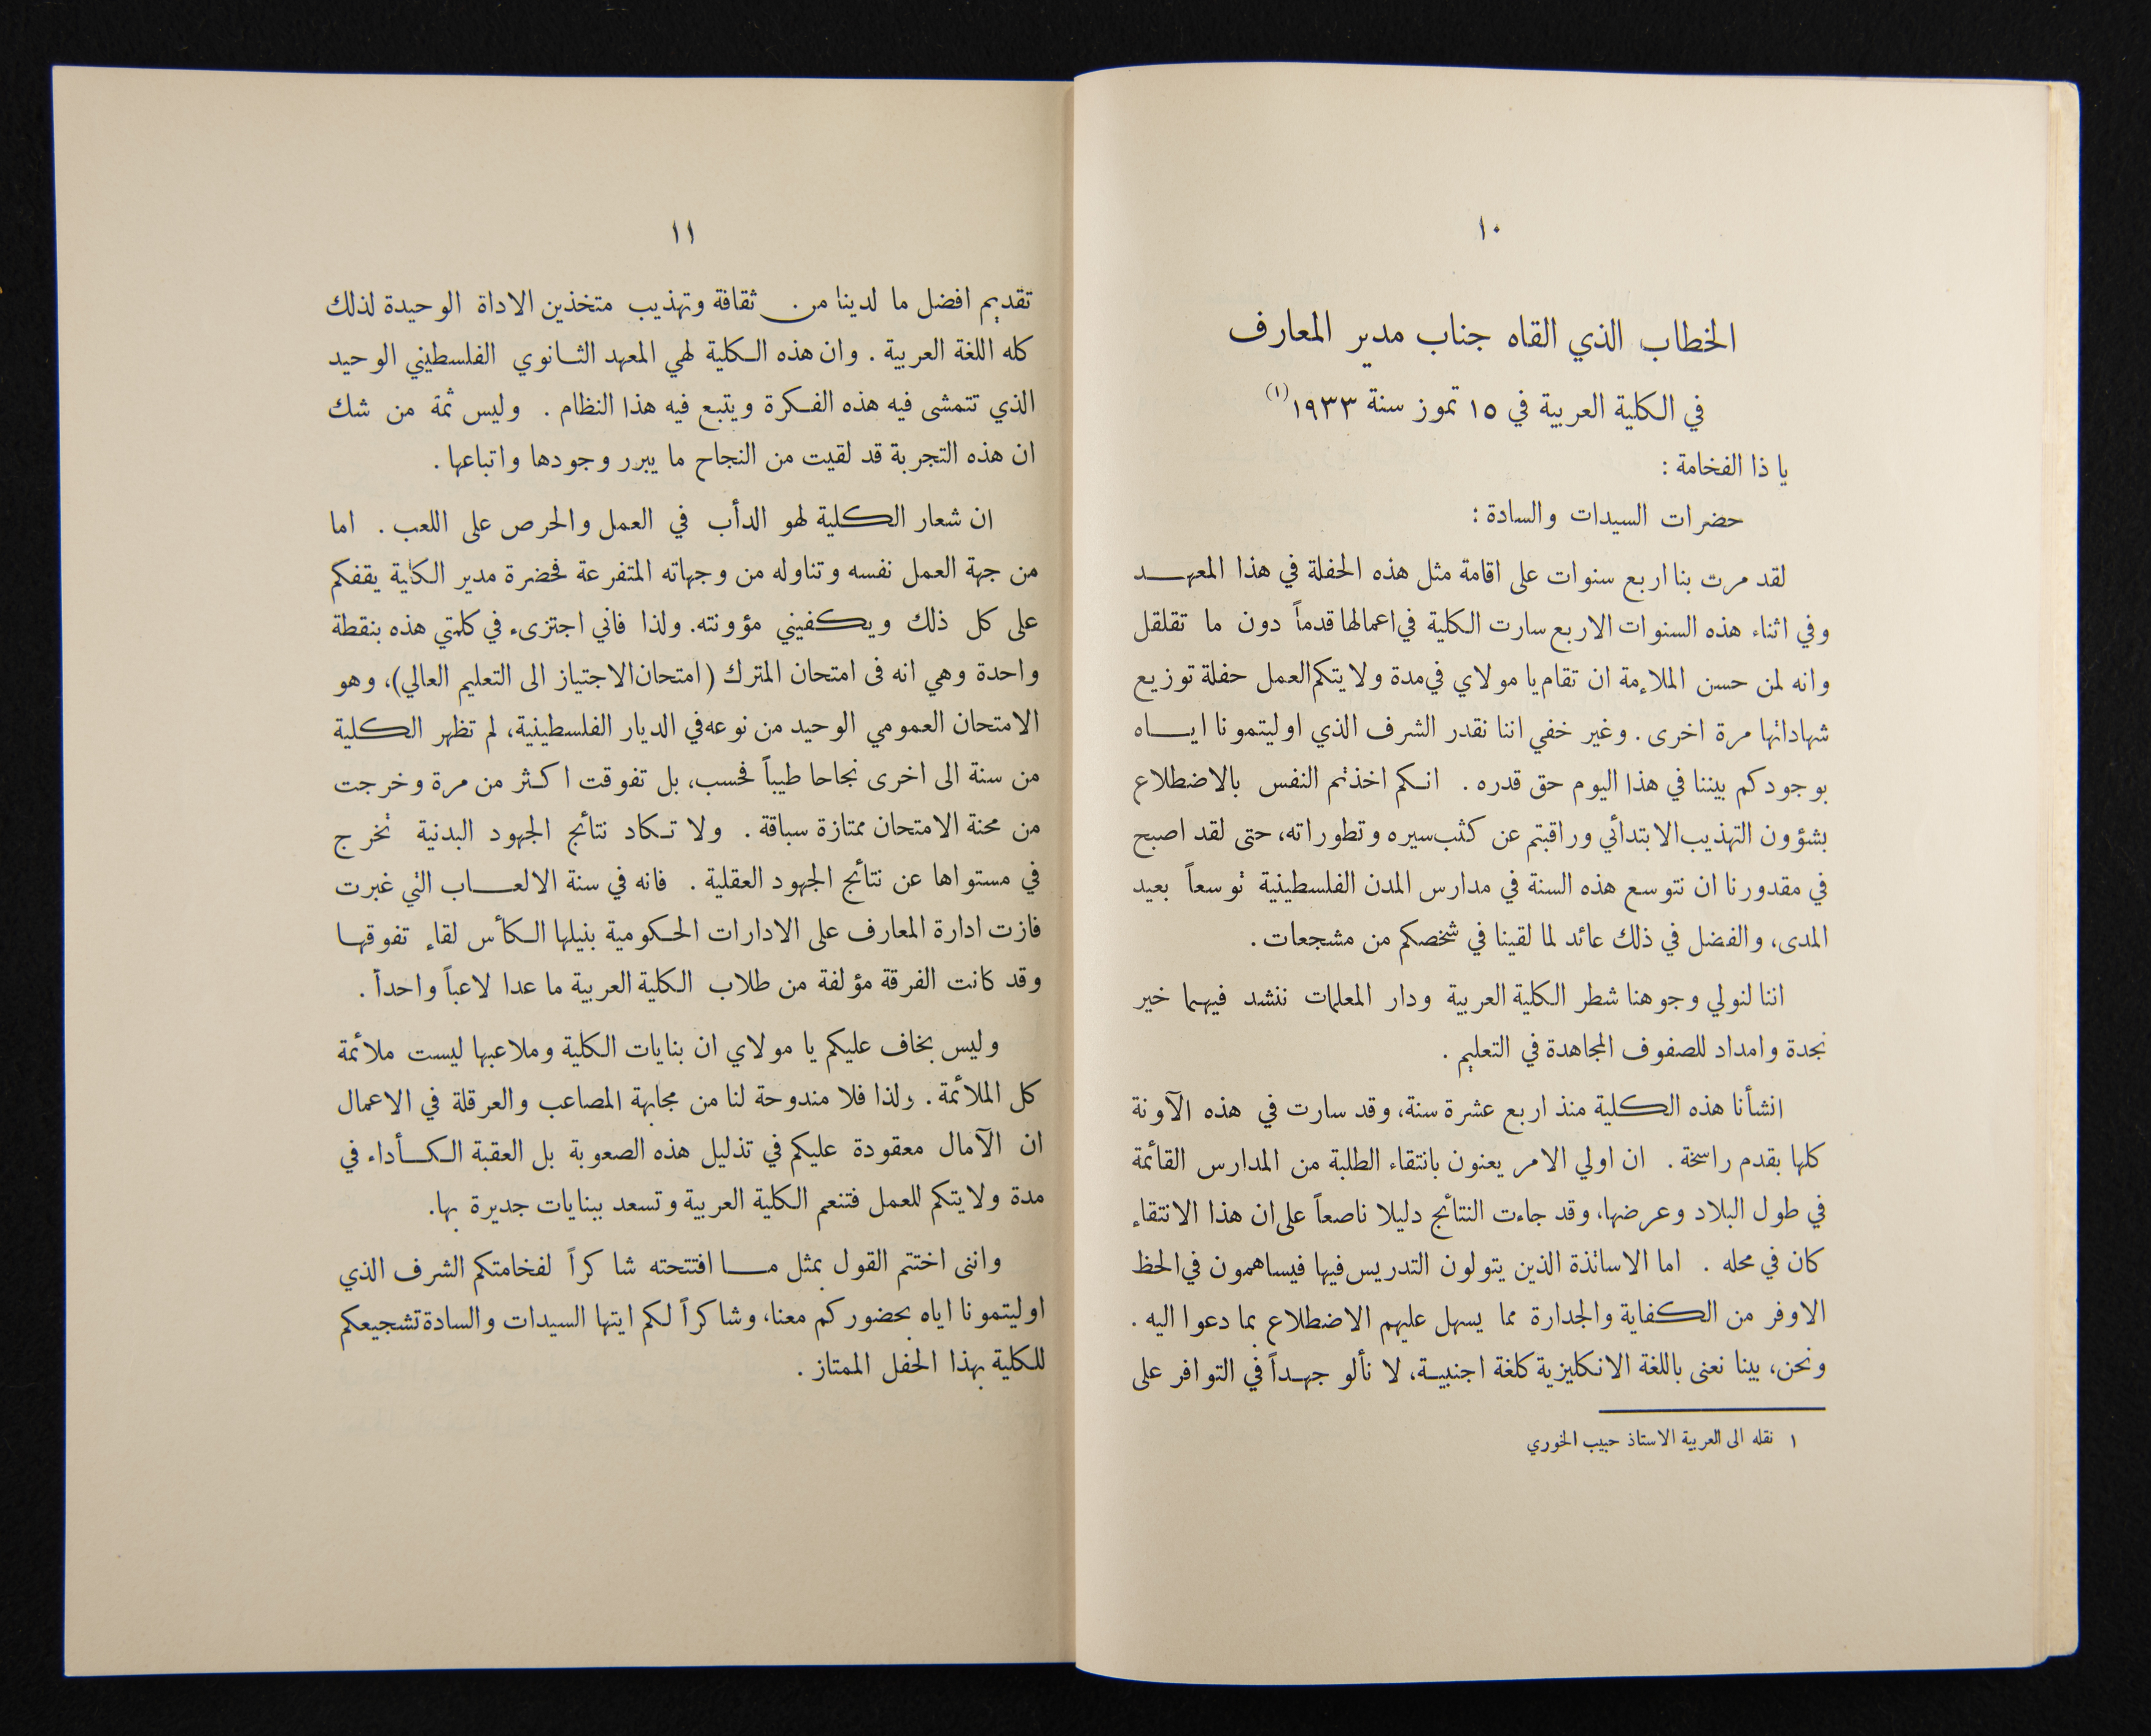 ١٠
الخطاب الذي القاه جناب مدير المعارف
في الكلية العربية في ١٥ تموز سنة ١٩٣٣ (١)
يا ذا الفخامة :
حضرات السيدات والسادة :
لقد مرت بنا اربع سنوات على اقامة مثل هذه الحفلة في هذا المعهد
وفي اثناء هذه السنوات الاربع سارت الكلية في اعمالها قدماً دون ما تقلقل
وانه لمن حسن الملاءمة ان تقام يا مولاي في مدة ولايتكم العمل حفلة توزيع
شهاداتها مرة اخرى . وغير خفي اننا نقدر الشرف الذي اوليتمونا اياه
بوجودكم بيننا في هذا اليوم حق قدره . انكم اخذتم النفس بالاضطلاع
بشؤون التهذيب الابتدائي وراقبتم عن كثب سيره وتطوراته، حتى لقد اصبح
في مقدورنا ان نتوسع هذه السنة في مدارس المدن الفلسطينية توسعاً بعيد
المدى، والفضل في ذلك عائد لما لقينا في شخصكم من مشجعات .
اننا لنولي وجوهنا شطر الكلية العربية ودار المعلمات ننشد فيهما خير
نجدة وامداد للصفوف المجاهدة في التعليم .
انشأنا هذه الكلية منذ اربع عشرة سنة، وقد سارت في هذه الآونة
كلها بقدم راسخة . ان اولي الامر يعنون بانتقاء الطلبة من المدارس القائمة
في طول البلاد وعرضها، وقد جاءت النتائج دليلا ناصعاً على ان هذا الانتقاء
كان في محله . اما الاساتذة الذين يتولون التدريس فيها فيساهمون في الحظ
الاوفر من الكفاية والجدارة مما يسهل عليهم الاضطلاع بما دعوا اليه .
ونحن، بينا نعنى باللغة الانكليزية كلغة اجنبية، لا نألو جهداً في التوافر على
١ نقله الى العربية الاستاذ حبيب الخوري
١١
تقديم افضل ما لدينا من ثقافة وتهذيب متخذين الاداة الوحيدة لذلك
كله اللغة العربية . وان هذه الكلية لهي المعهد الثانوي الفلسطيني الوحيد
الذي تتمشى فيه هذه الفكرة ويتبع فيه هذا النظام . وليس ثمة من شك
ان هذه التجربة قد لقيت من النجاح ما يبرر وجودها واتباعها .
ان شعار الكلية لهو الدأب في العمل والحرص على اللعب . اما
من جهة العمل نفسه وتناوله من وجهاته المتفرعة فحضرة مدير الكلية يقفكم
على كل ذلك ويكفيني مؤونته. ولذا فاني اجتزىء في كلمتي هذه بنقطة
واحدة وهي انه فى امتحان المترك (امتحان الاجتياز الى التعليم العالي)، وهو
الامتحان العمومي الوحيد من نوعه في الديار الفلسطينية، لم تظهر الكلية
من سنة الى اخرى نجاحا طيباً فحسب، بل تفوقت اكثر من مرة وخرجت
من محنة الامتحان ممتازة سباقة . ولا تكاد نتائج الجهود البدنية تخرج
في مستواها عن نتائج الجهود العقلية . فانه في سنة الالعاب التي غبرت
فازت ادارة المعارف على الادارات الحكومية بنيلها الكأس لقاء تفوقها
وقد كانت الفرقة مؤلفة من طلاب الكلية العربية ما عدا لاعباً واحداً .
وليس بخاف عليكم يا مولاي ان بنايات الكلية وملاعبها ليست ملائمة
كل الملائمة . ولذا فلا مندوحة لنا من مجابهة المصاعب والعرقلة في الاعمال
ان الآمال معقودة عليكم في تذليل هذه الصعوبة بل العقبة الكأداء في
مدة ولايتكم للعمل فتنعم الكلية العربية وتسعد ببنايات جديرة بها.
واننى اختتم القول بمثل ما افتتحته شاكراً لفخامتكم الشرف الذي
اوليتمونا اياه بحضوركم معنا، وشاكراً لكم ايتها السيدات والسادة تشجيعكم
للكلية بهذا الحفل الممتاز .